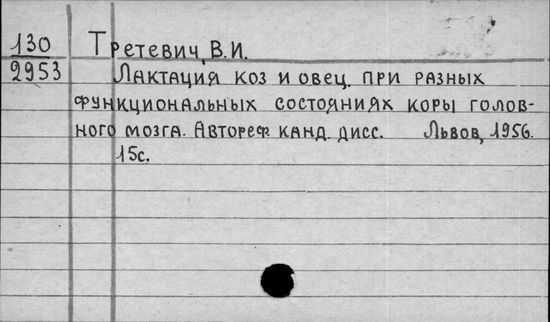 130 Третевич, В.И.
2953 Лактация коз и овец при разных
функциональных состояниях коры голов-
ного мозга. Автореф. канд. дисс. Львов, 1956.
15с.